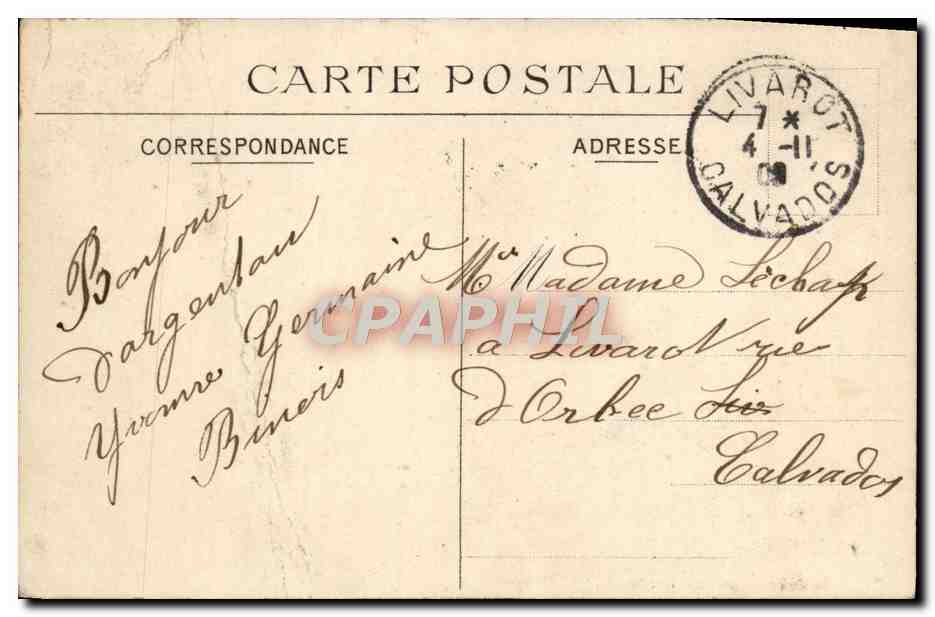 CARTE POSTALE
CORRESPONDANCE
ADRESSE
LIVAROT
7 *
4 -11
CALVADOS
Bonjour
d'argentan
Yvonne Germaine
Binois
Mr Madame Léchap
a Livarot rue
d'Orbec Liv
Calvados
CPAPHIL